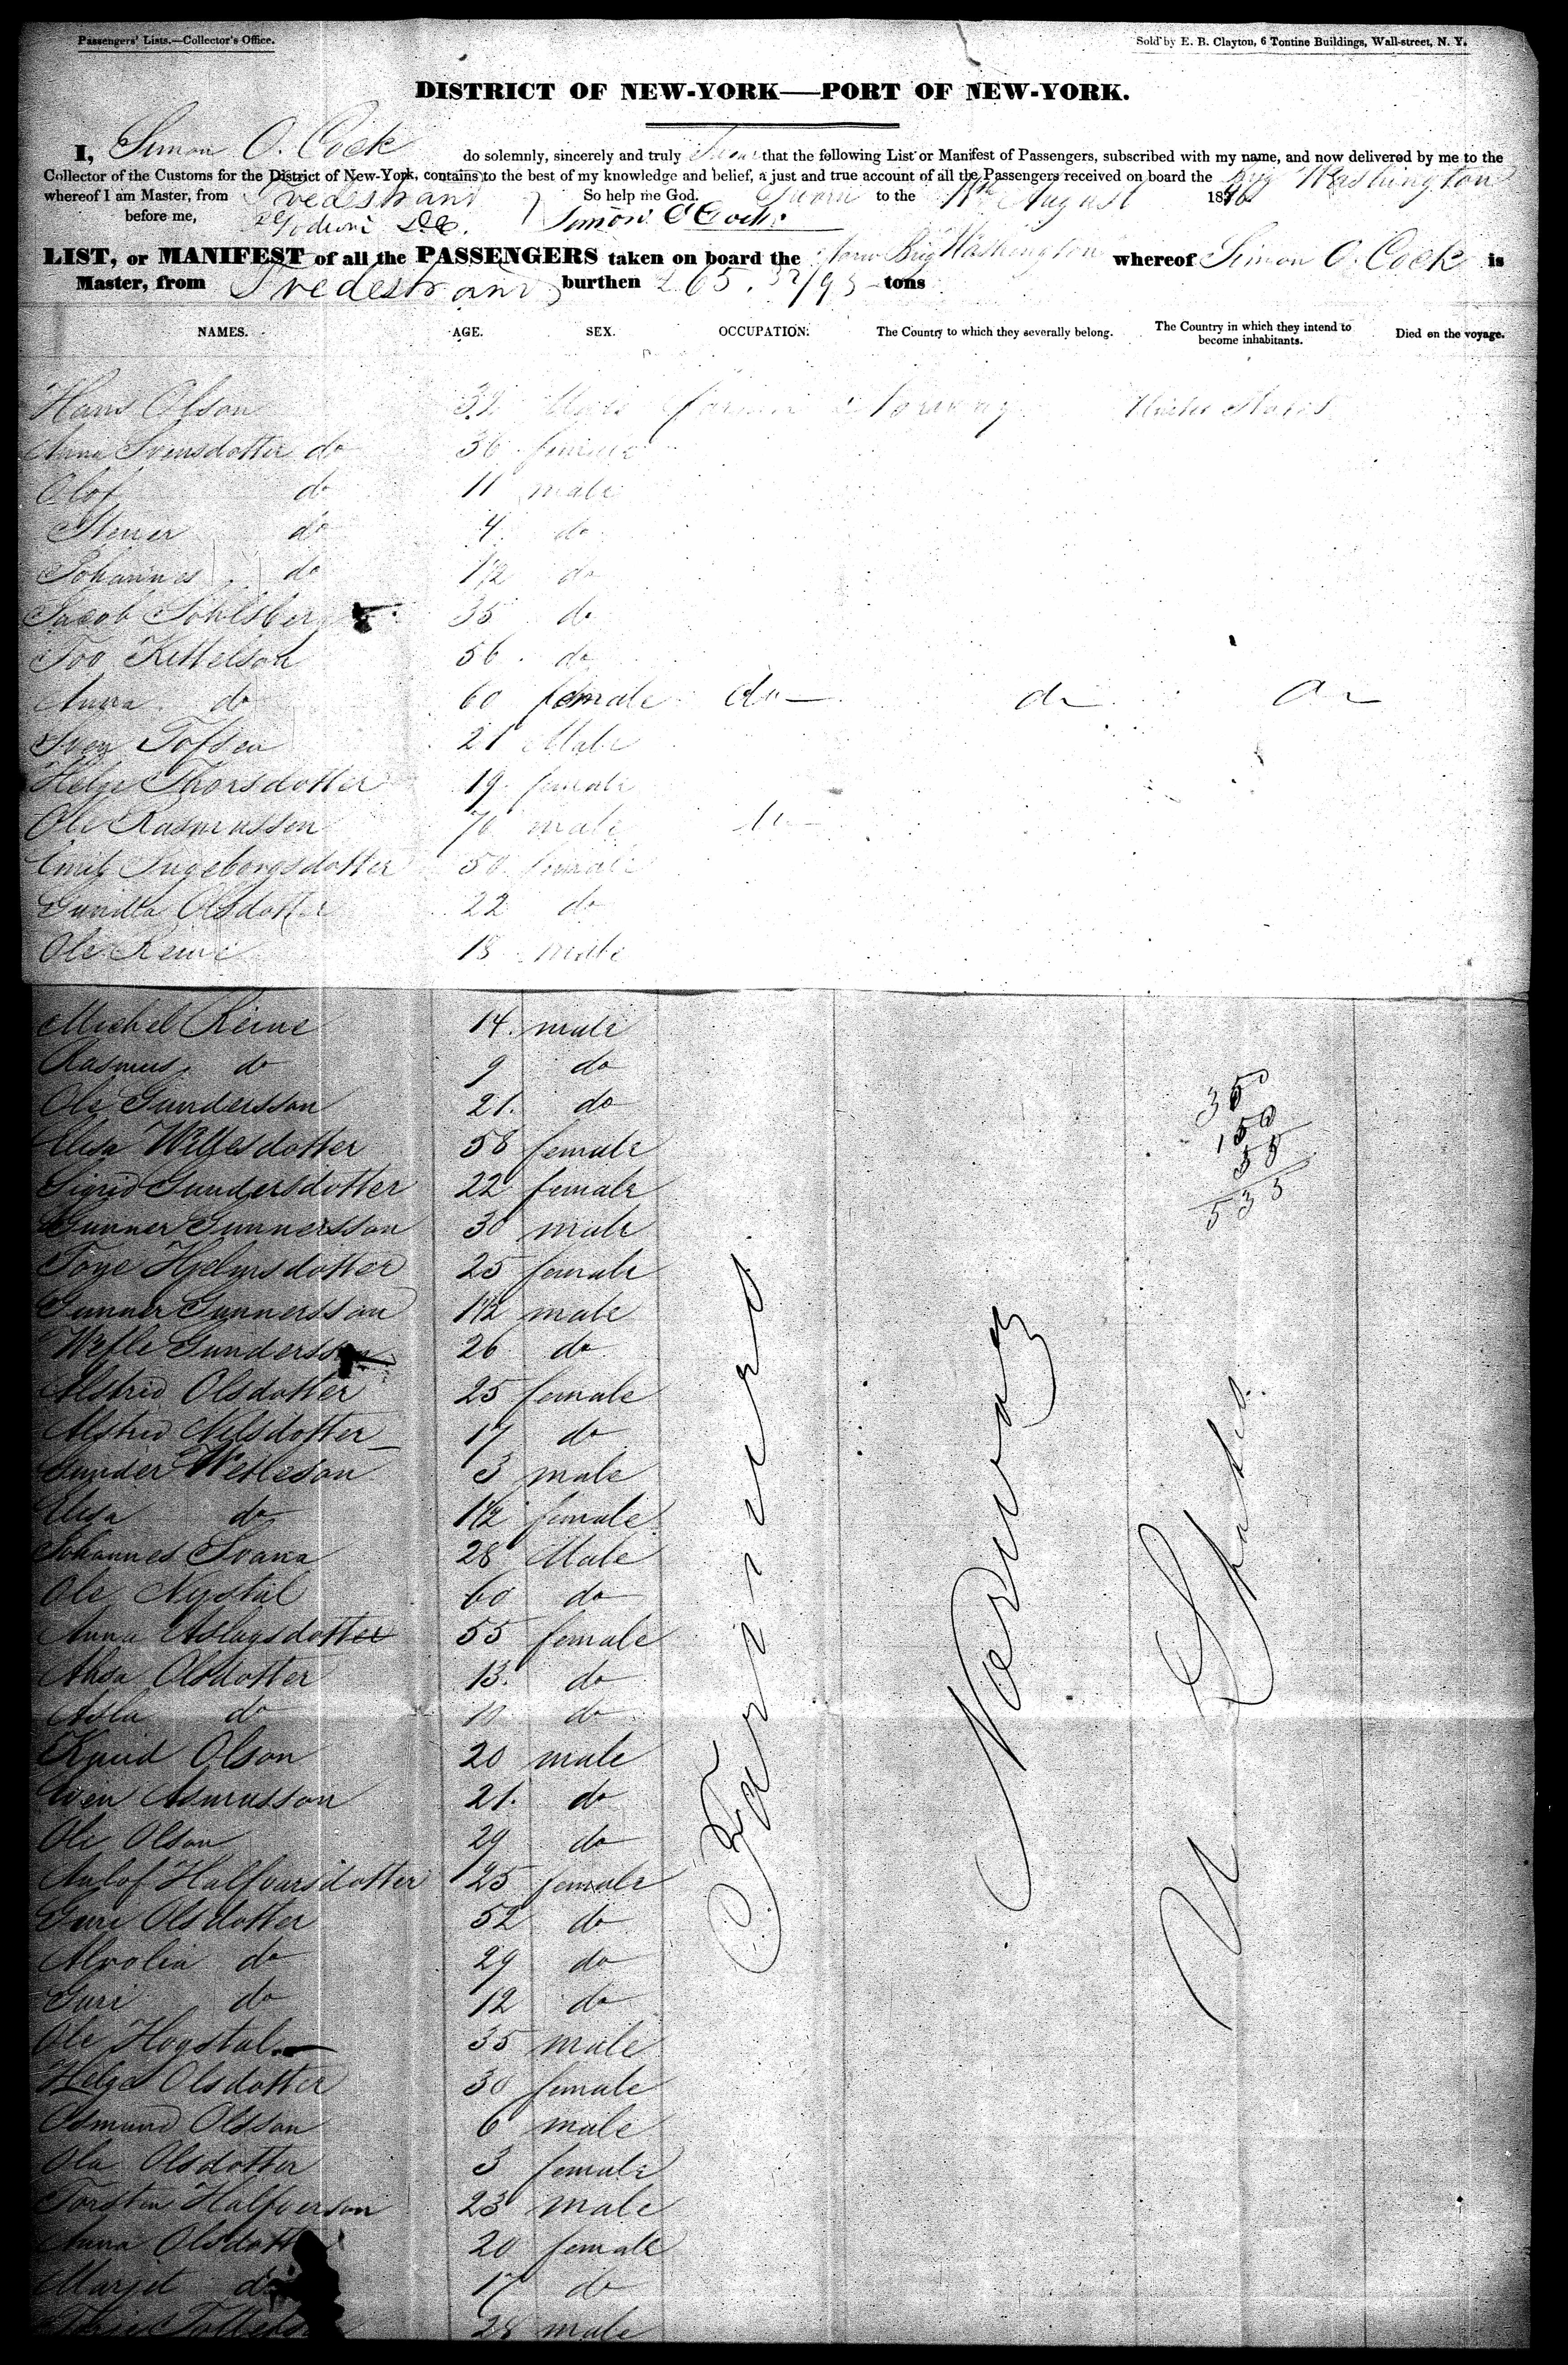 Passengers' Lists.—Collector's Office.
Sold by E. B. Clayton, 6 Tontine Buildings, Wall-street, N. Y.
DISTRICT OF NEW-YORK—PORT OF NEW-YORK.
I, Simon O. Cock do solemnly, sincerely and truly Swear that the following List or Manifest of Passengers, subscribed with my name, and now delivered by me to the
Collector of the Customs for the District of New-York, contains to the best of my knowledge and belief, a just and true account of all the Passengers received on board the Brig Washington
whereof I am Master, from Tvedestrand So help me God. Sworn to the August 1846
before me, Simon O Cock
LIST, or MANIFEST of all the PASSENGERS taken on board the Brig Washington whereof Simon O. Cock is
Master, from Tvedestrand burthen 265. 32/95 tons
NAMES. AGE. SEX. OCCUPATION. The Country to which they severally belong. The Country in which they intend to become inhabitants. Died on the voyage.
Hans Olson 32 Male farmer Norway United States
Anna Svensdotter do 36 female
Olof do 11 male
Stener do 4 do
Johannes do 1/2 do
Jacob 35 do
Tov Kittelson 56 do
Anna do 60 female do do do
Sven Tofsen 21 Male
Helge Thorsdotter 19 female
Ole Rasmusson 70 male do
Ingeborgsdotter 50 female
Gunilla Olsdotter 22 do
Ole Reine 18 male
Michel Reine 14. male
Rasmus do 9 do
Ole Gundersson 21. do
Elisa 58 female
Sigrid Gundersdotter 22 female
Gunner Gunnersson 30 male
Tone 25 female
Gunner Gunnersson 1 1/2 male
Gundersson 26 do
Alstrid Olsdotter 25 female
Alstrid Nilsdotter 17 do
Gunder Wetleson 3 male
Elisa do 1 1/2 female
Johannes Svana 28 Male
Ole Nystul 60 do
Anna Aslagsdotter 55 female
Olsdotter 13. do
Asla do 10 do
Knud Olson 20 male
Even Asmusson 21. do
Ole Olson 29 do
Halfvarsdotter 25 female
Guri Olsdotter 52 do
do 29 do
Guri do 12 do
Ole Hogstul 35 male
Helge Olsdotter 30 female
Osmund Olsson 6 male
Ola Olsdotter 3 female
Torsten Halfverson 23 male
Anna Olsdotter 20 female
Marget do 17 do
28 male
Farmers
Norway
U States
350
150
33
533